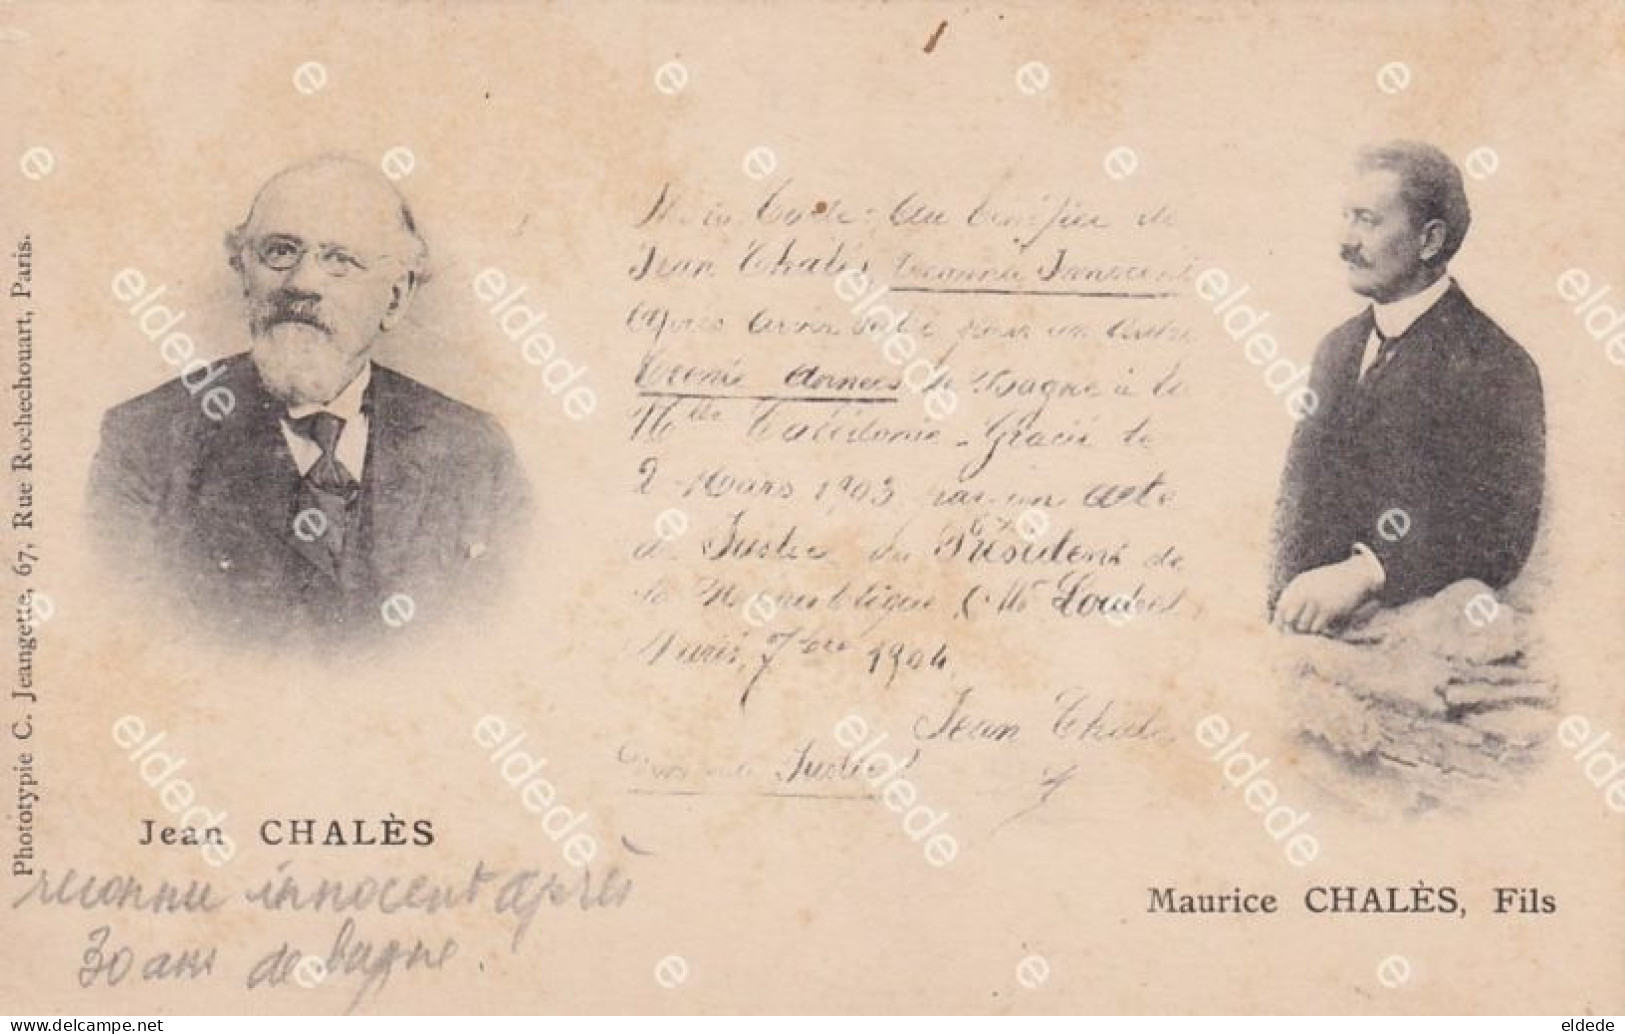 Phototypie C. Jeangette, 67, Rue Rochechouart, Paris.
au Bénéfice de
Jean Chalès, reconnu Innocent
après avoir subi pour un autre
trente Années de Bagne à la
Nlle Calédonie. Gracié le
2 Mars 1903 par un acte
de Justice du Président de
la République (Mr Loubet)
Paris, 7bre 1904.
Jean Chalès
Justice!
Jean CHALÈS
reconnu innocent après
30 ans de bagne.
Maurice CHALÈS, Fils
eldede
eldede
eldede
eldede
eldede
eldede
eldede
eldede
eldede
eldede
delcampe.net
eldede